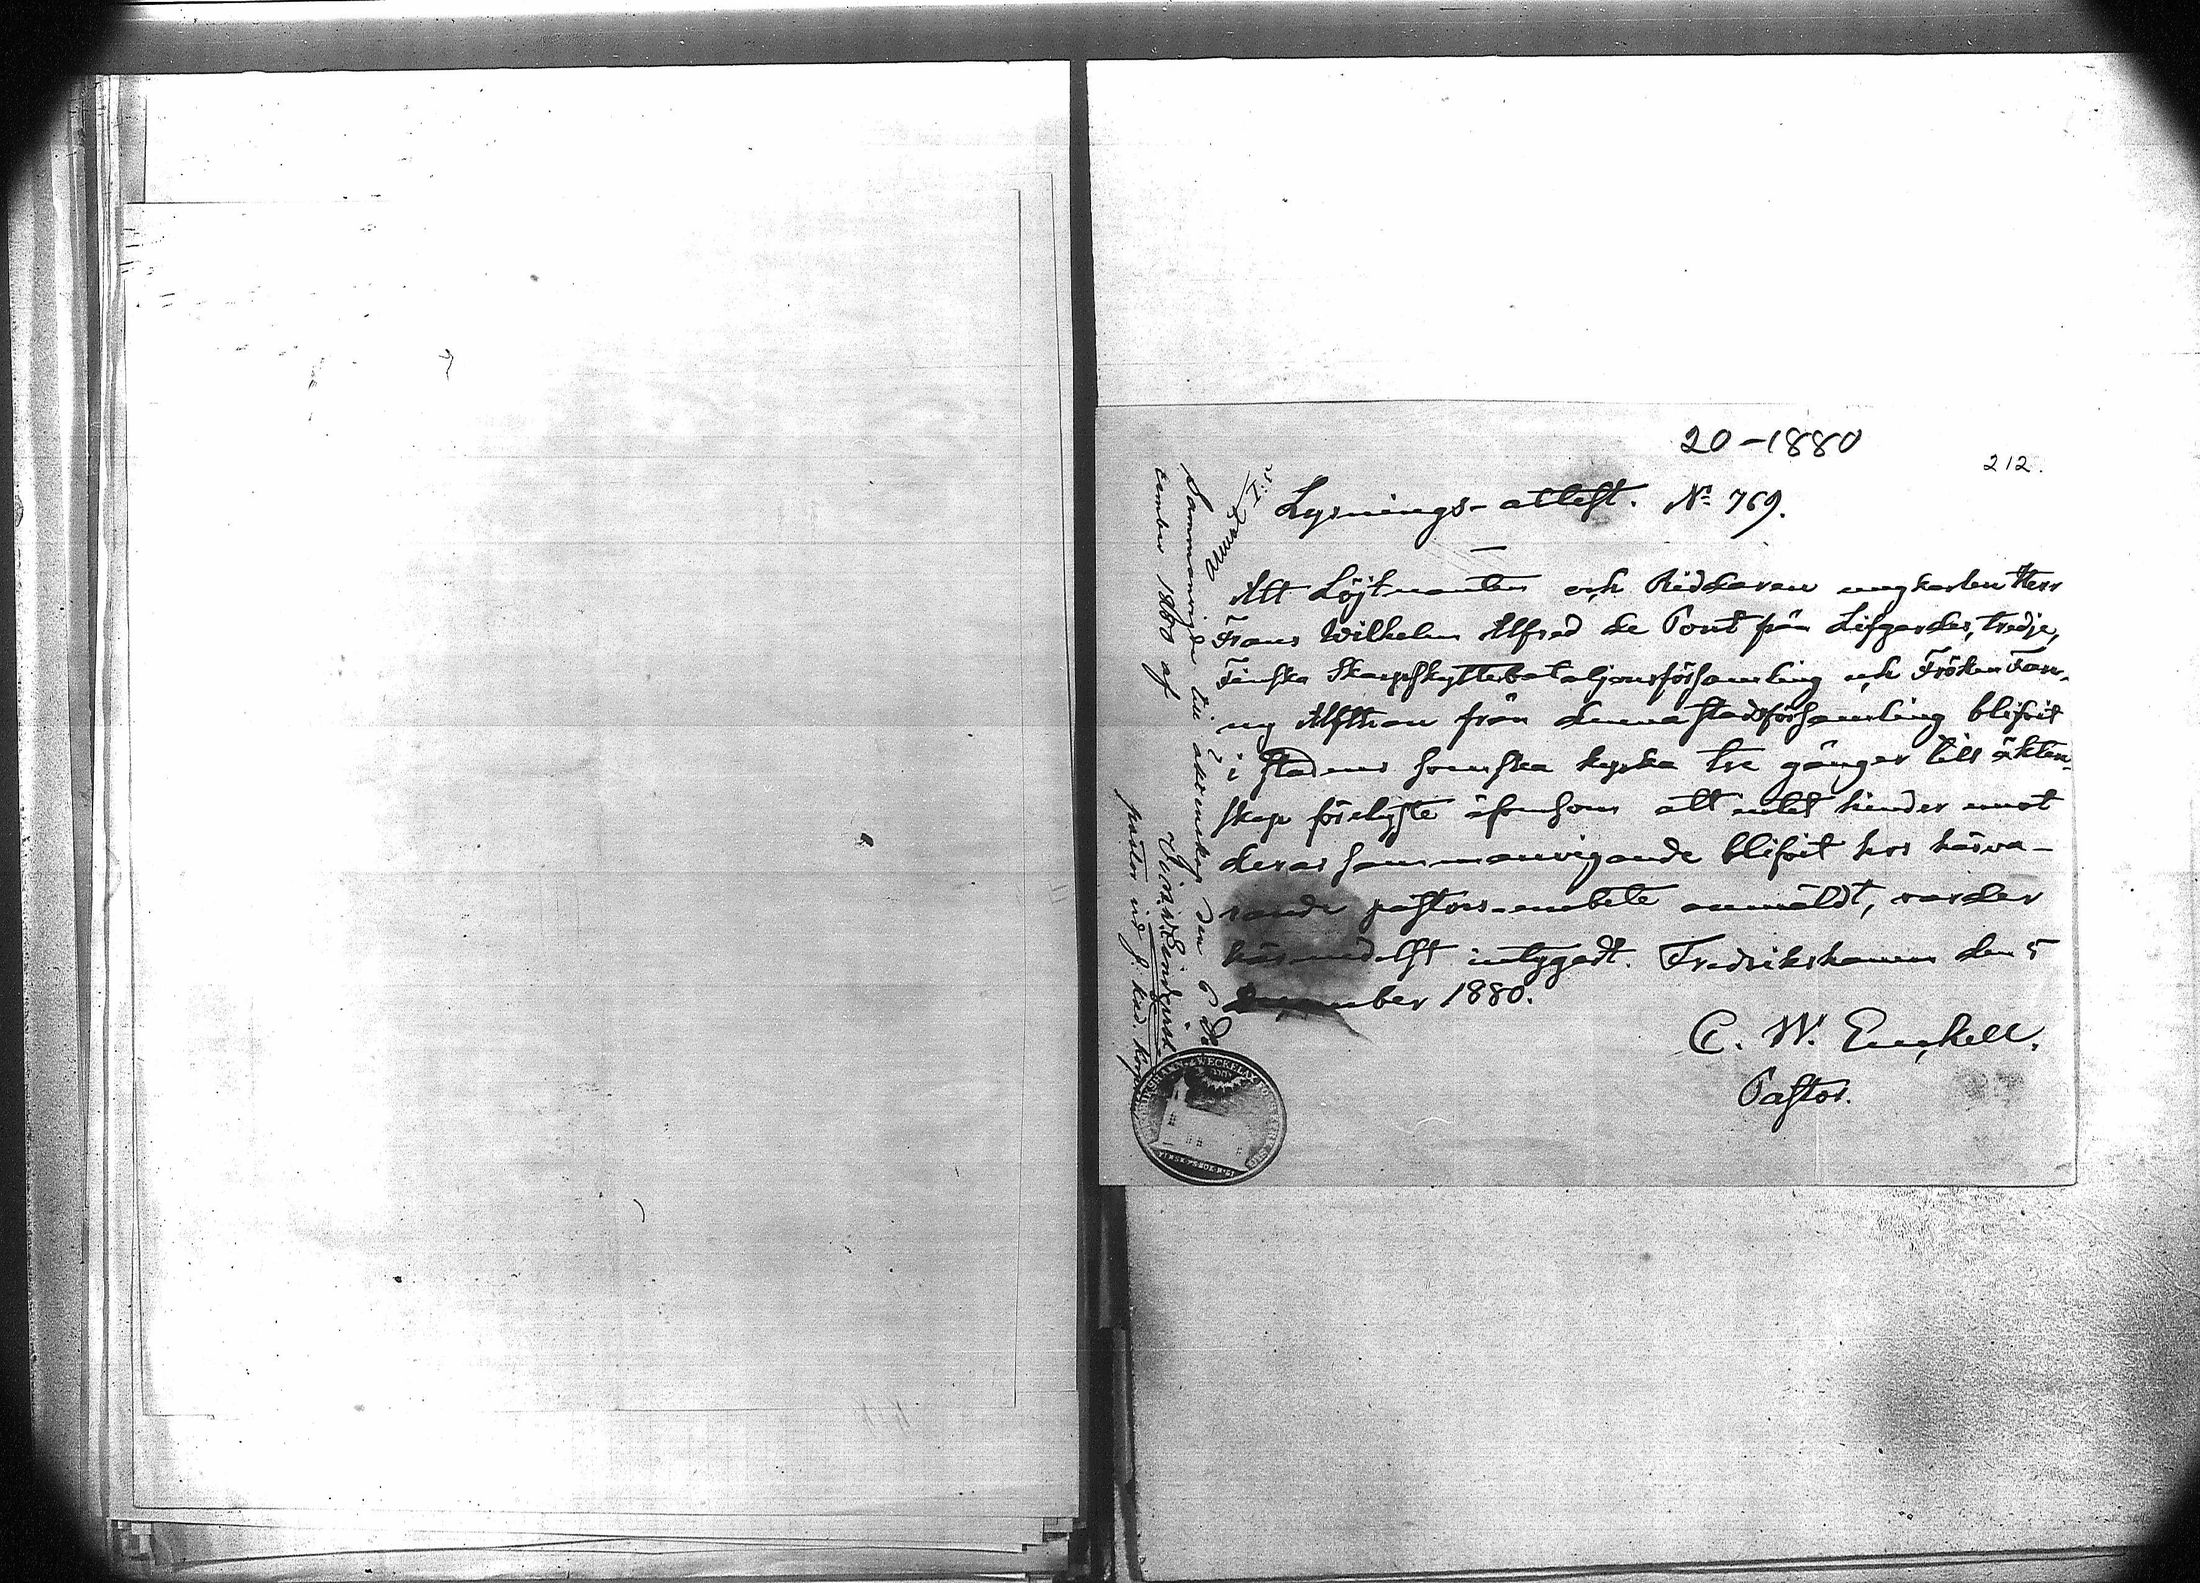 20-1880
212.
Lysnings-attest. No 769.
Att Löjtnanten och Riddaren ungkarlen Herr
Frans Wilhelm Alfred de Pont från Lifgardes, tredje,
Finska Skarpskyttebataljonsförsamling och Fröken Fan-
ny Alfthan från denna stadsförsamling blifvit
i stadens svenska kyrka tre gånger till äkten-
skap förelyste äfvensom att intet hinder emot
deras sammanvigande blifvit hos härva-
rande pastors-embete anmäldt, varder
härmedelst intygadt. Fredrikshamn den 5
December 1880.
C. W. Enckell.
Pastor.
Sammanvigde till äktenskap den 6 De-
cember 1880 af
pastor vid F. kad. kyrk